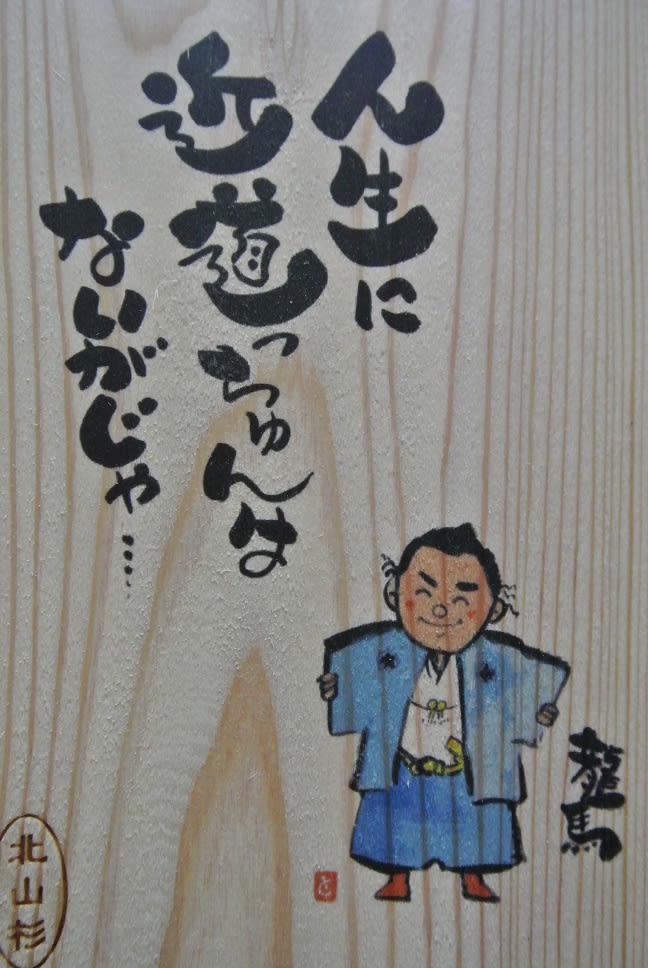 人生に
近道っちゅんは
ないがじゃ……
龍馬
北山杉